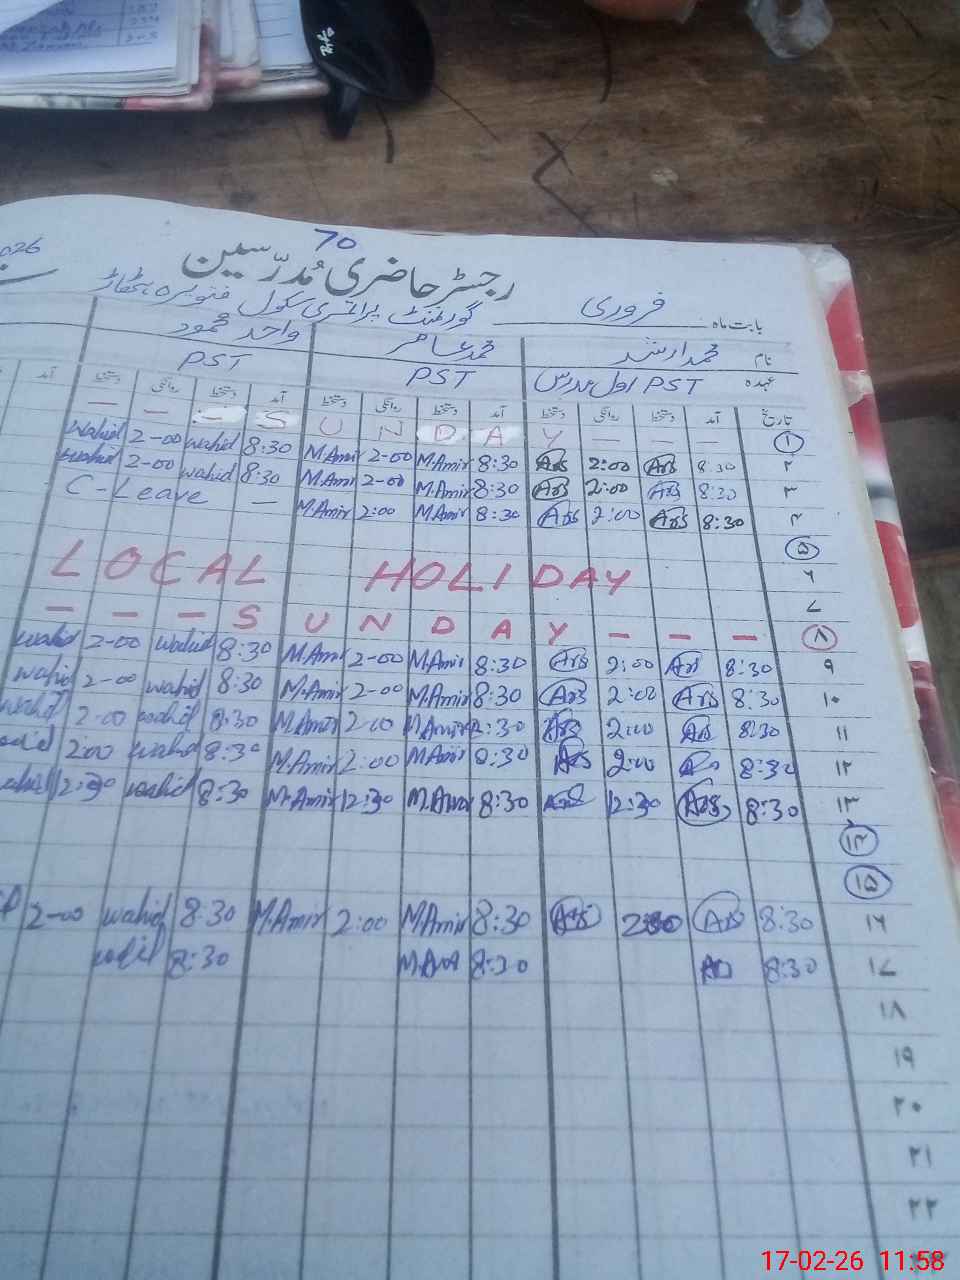 70
رجسٹر حاضری مدرسین
026
گورنمنٹ پرائمری سکول
بابت ماہ فروری
نام محمد ارشد محمد عامر واحد محمود
عہدہ PST اول مدرس PST PST
تاریخ آمد دستخط روانگی دستخط آمد دستخط روانگی دستخط آمد دستخط روانگی دستخط آمد
۱ — — — S U N D A Y — — —
۲ 8:30 Ars 2:00 Ars 8:30 M.Amir 2-00 M.Amir 8:30 wahid 2-00 wahid
۳ 8:30 Ars 2:00 Ars 8:30 M.Amir 2-00 M.Amir 8:30 wahid 2-00 wahid
۴ 8:30 Ars 2:00 Ars 8:30 M.Amir 2:00 M.Amir — C-Leave
۵
۶ LOCAL HOLIDAY
۷
۸ — — — S U N D A Y — — —
۹ 8:30 Ars 2:00 Ars 8:30 M.Amir 2-00 M.Amir 8:30 wahid 2-00 wahid
۱۰ 8:30 Ars 2:00 Ars 8:30 M.Amir 2-00 M.Amir 8:30 wahid 2-00 wahid
۱۱ 8:30 Ars 2:00 Ars 8:30 M.Amir 2-00 M.Amir 8:30 wahid 2-00 wahid
۱۲ 8:30 Ars 2:00 Ars 8:30 M.Amir 2:00 M.Amir 8:30 wahid 2:00
۱۳ 8:30 Ars 12:30 Ars 8:30 M.Amir 12:30 M.Amir 8:30 wahid 12:30
۱۴
۱۵
۱۶ 8:30 Ars Ars 8:30 M.Amir 2:00 M.Amir 8:30 wahid 2-00
۱۷ 8:30 8:30 M.Amir 8:30 wahid
۱۸
۱۹
۲۰
۲۱
۲۲
17-02-26 11:58